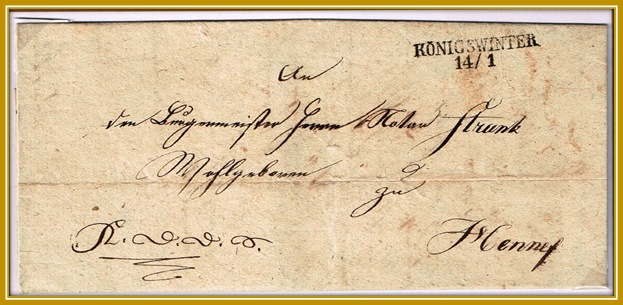 KÖNIGSWINTER
14/1
An
den Burgermeister Herrn Notar Strunk
Wohlgeboren
zu
Hennef
R. D. D. S.